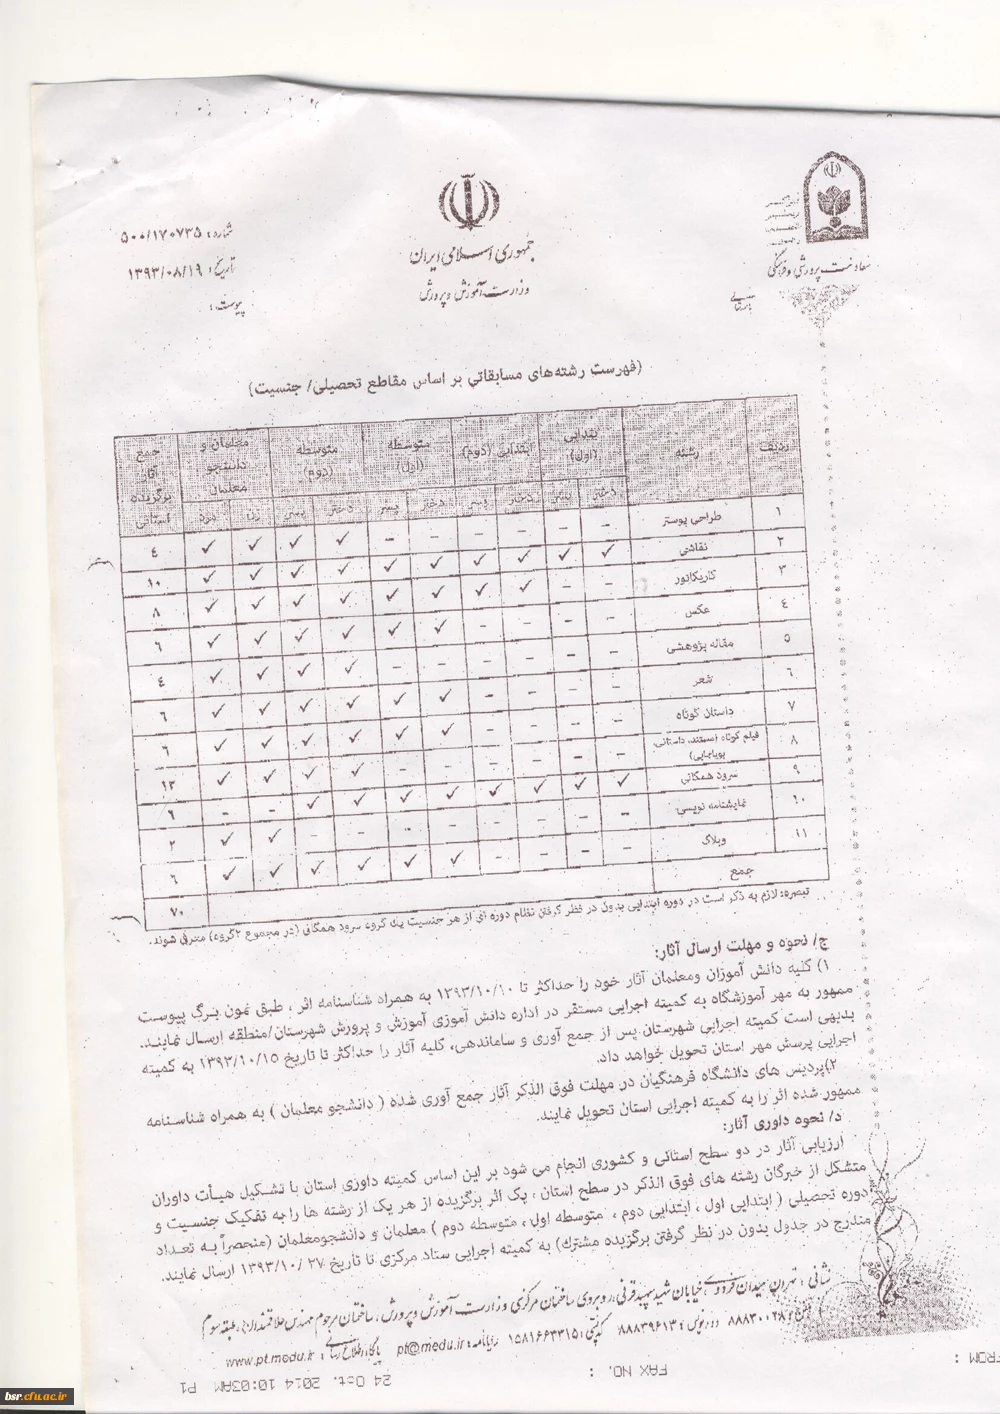 شماره: ۵۰۰/۱۷۰۷۳۵
تاریخ: ۱۳۹۳/۰۸/۱۹
پیوست:
جمهوری اسلامی ایران
وزارت آموزش و پرورش
معاونت پرورشی و فرهنگی
باسمه تعالی
(فهرست رشته‌های مسابقاتی بر اساس مقاطع تحصیلی/ جنسیت)
ردیف | رشته | ابتدایی (اول) | ابتدایی (دوم) | متوسطه (اول) | متوسطه (دوم) | معلمان و دانشجو معلمان | جمع آثار برگزیده استانی
دختر | پسر | دختر | پسر | دختر | پسر | دختر | پسر | زن | مرد
۱ | طراحی پوستر | - | - | - | - | - | - | ✓ | ✓ | ✓ | ✓ | ٤
۲ | نقاشی | ✓ | ✓ | ✓ | ✓ | ✓ | ✓ | ✓ | ✓ | ✓ | ✓ | ۱۰
۳ | کاریکاتور | - | - | ✓ | ✓ | ✓ | ✓ | ✓ | ✓ | ✓ | ✓ | ۸
٤ | عکس | - | - | - | - | ✓ | ✓ | ✓ | ✓ | ✓ | ✓ | ٦
۵ | مقاله پژوهشی | - | - | - | - | - | - | ✓ | ✓ | ✓ | ✓ | ٤
٦ | شعر | - | - | - | - | ✓ | ✓ | ✓ | ✓ | ✓ | ✓ | ٦
۷ | داستان کوتاه | - | - | - | - | ✓ | ✓ | ✓ | ✓ | ✓ | ✓ | ٦
۸ | فیلم کوتاه (مستند، داستانی، پویانمایی) | - | - | - | - | - | - | ✓ | ✓ | ✓ | ✓ | ۱۲
۹ | سرود همگانی | ✓ | ✓ | ✓ | ✓ | ✓ | ✓ | ✓ | ✓ | - | - | ٦
۱۰ | نمایشنامه نویسی | - | - | - | - | - | - | - | - | ✓ | ✓ | ۲
۱۱ | وبلاگ | - | - | - | - | ✓ | ✓ | ✓ | ✓ | ✓ | ✓ | ٦
جمع | ۷۰
تبصره: لازم به ذکر است در دوره ابتدایی بدون در نظر گرفتن نظام دوره ای از هر جنسیت یک گروه سرود همگانی (در مجموع ۲گروه) معرفی شوند.
ج/ نحوه و مهلت ارسال آثار:
۱) کلیه دانش آموزان ومعلمان آثار خود را حداکثر تا ۱۳۹۳/۱۰/۱۰ به همراه شناسنامه اثر ، طبق نمون برگ پیوست
ممهور به مهر آموزشگاه به کمیته اجرایی مستقر در اداره دانش آموزی آموزش و پرورش شهرستان/منطقه ارسال نمایند.
بدیهی است کمیته اجرایی شهرستان پس از جمع آوری و ساماندهی، کلیه آثار را حداکثر تا تاریخ ۱۳۹۳/۱۰/۱۵ به کمیته
اجرایی پرسش مهر استان تحویل خواهد داد.
۲)پردیس های دانشگاه فرهنگیان در مهلت فوق الذکر آثار جمع آوری شده ( دانشجو معلمان ) به همراه شناسنامه
ممهور شده اثر را به کمیته اجرایی استان تحویل نمایند.
د/ نحوه داوری آثار:
ارزیابی آثار در دو سطح استانی و کشوری انجام می شود بر این اساس کمیته داوری استان با تشکیل هیأت داوران
متشکل از خبرگان رشته های فوق الذکر در سطح استان ، یک اثر برگزیده از هر یک از رشته ها را به تفکیک جنسیت و
دوره تحصیلی ( ابتدایی اول ، ابتدایی دوم ، متوسطه اول ، متوسطه دوم ) معلمان و دانشجومعلمان (منحصراً به تعداد
مندرج در جدول بدون در نظر گرفتن برگزیده مشترک) به کمیته اجرایی ستاد مرکزی تا تاریخ ۲۷ /۱۳۹۳/۱۰ ارسال نمایند.
نشانی : تهران، میدان فردوسی، خیابان شهید سپهبد قرنی، روبروی ساختمان مرکزی وزارت آموزش و پرورش، ساختمان مرحوم مهندس علاقمندان، طبقه سوم
۸۸۸۳۰۰۲۸ دورنویس: ۸۸۸۳۹۶۱۳ کدپستی: ۱۵۸۱۶۶۳۳۱۵ رایانامه: pt@medu.ir پایگاه اطلاع رسانی: www.pt.medu.ir
FROM : FAX NO. : 24 Oct. 2014 10:03AM P1
bsr.cfu.ac.ir